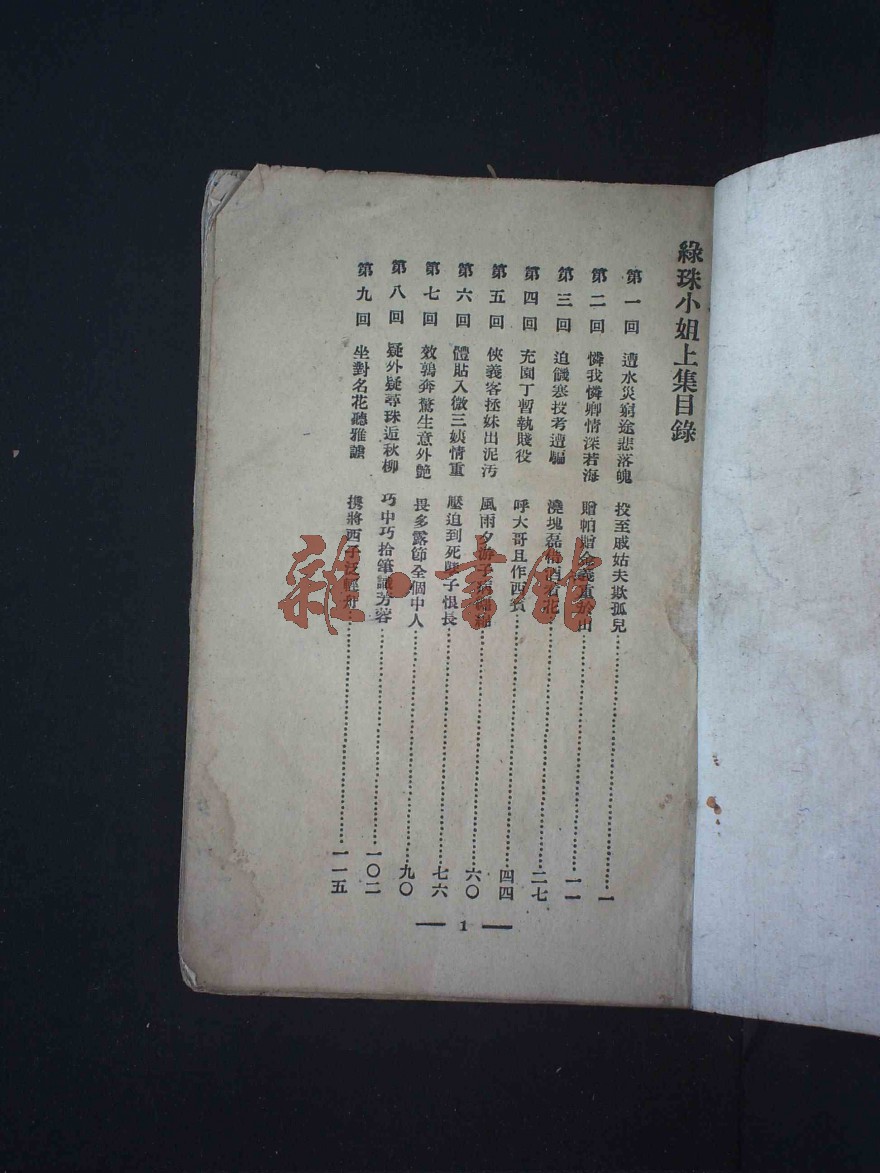 綠珠小姐上集目錄
第一回 遭水災窮途悲落魄 投至戚姑夫欺孤兒 一
第二回 憐我憐卿情深若海 贈帕贈金義重 山 一一
第三回 迫饑寒投考遭騙 澆塊磊 花 二七
第四回 充園丁暫執賤役 呼大哥且作西賓 四四
第五回 俠義客拯妹出泥汚 風雨夕游子 六〇
第六回 體貼入微三姨情重 壓迫到死 子恨長 七六
第七回 效鶉奔驚生意外艷 畏多露節全個中人 九〇
第八回 疑外疑尋珠逅秋柳 巧中巧拾筆識芳容 一〇二
第九回 坐對名花聽雅謔 携將西子泛輕舟 一一五
1
雜·書館